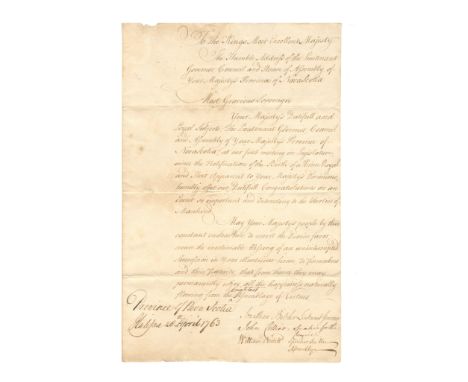 To the Kings Most Excellent Majesty
The Humble Address of the Lieutenant
Governor Council and House of Assembly of
Your Majesty's Province of Nova Scotia
Most Gracious Sovereign
Your Majesty's Dutifull and
Loyal Subjects The Lieutenant Governor Council
and Assembly of Your Majesty's Province of
Nova Scotia, at our first meeting in Legislature
since the Notification of the Birth of a Prince Royal
and Heir Apparent to Your Majesty's Dominions,
humbly offer our Dutifull Congratulations on an
Event so important and Interesting to the
Mankind
May Your Majesty's people by their
constant endeavours to merit the Divine favor
secure the inestimable Blessing of an uninterrupted
Succession in Your Illustrious house to
and their Posterity, that from thence they may
permanently enjoy all the happiness naturally
flowing from the of Virtues
Province of Nova Scotia
Halifax April 1763
Jonathan Belcher Lieutenant Governor
John Collier
William Nesbitt